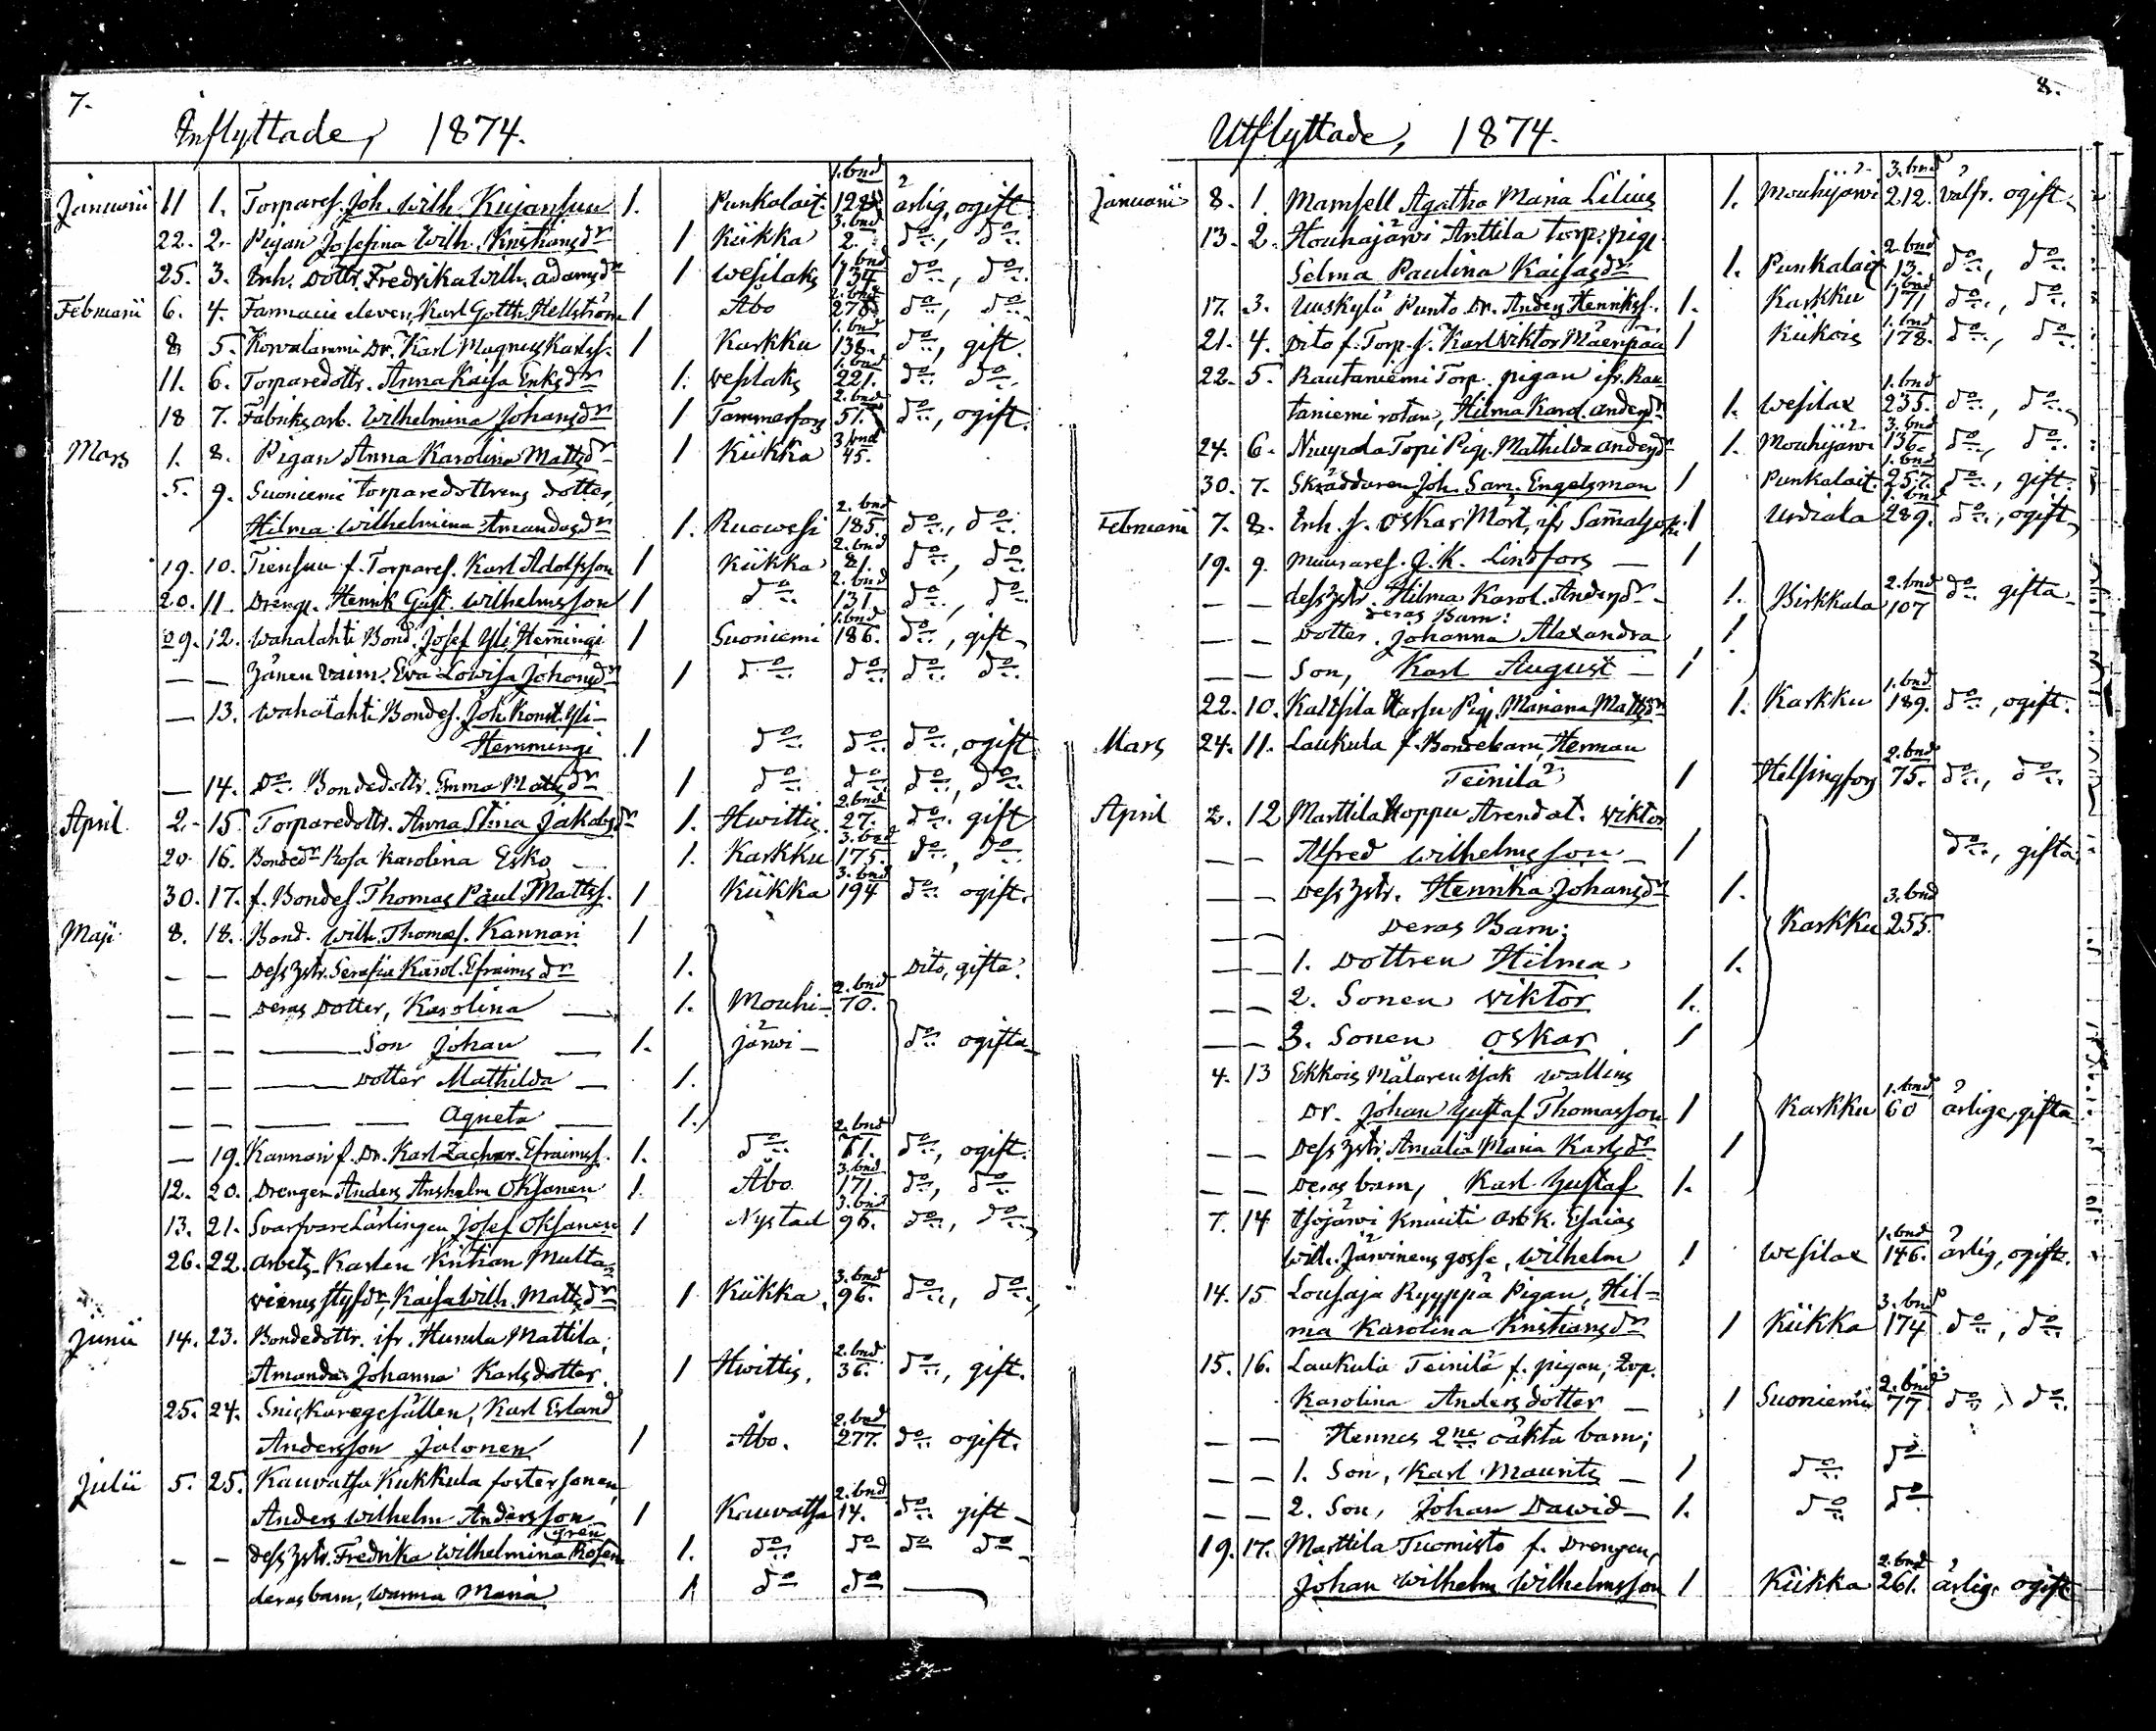 7.
Inflyttade, 1874.
1. bnd
Januarii 11 1. Torpares. Joh. Wilh. Kujansuu 1. Punkalait. 128 ärlig, ogift.
3. bnd
22. 2. Pigan Josefina Wilh. Kristiansdr 1 Kiikka 2. do, do.
1. bnd
25. 3. Inh. Dottr. Fredrika Wilh. Adamsdr 1 Wesilaks 134. do, do.
2. bnd
Februarii 6. 4. Farmacie eleven, Karl Gotth. Hellström 1 Åbo 278 do, do.
1. bnd
8 5. Kowalammi Dr. Karl Magnus Karlss. 1 Karkku 138. do, gift.
1. bnd
11. 6. Torparedottr. Anna Kaisa Eriksdr 1. Wesilaks 221. do do.
2. bnd
18 7. Fabriksarb. Wilhelmina Johansdr 1 Tammerfors 51. do, ogift.
3. bnd
Mars 1. 8. Pigan Anna Karolina Mattsdr 1 Kiikka 45.
5. 9. Suoniemi Torparedottrens dotter,
2. bnd
Hilma Wilhelmina Amandasdr 1. Ruowesi 185. do, do.
2. bnd
19. 10. Tiensuu f. Torpares. Karl Adolfsson 1 Kiikka 81. do, do.
2. bnd
20. 11. Dreng. Henrik Gust. Wilhelmsson 1 do 131. do, do.
1. bnd
29. 12. Wahalahti Bond. Josef Yli Hemmingi 1 Suoniemi 186. do, gift
— — Jänen vaim. Eva Lowisa Johansdr 1 do do do do.
— 13. Wahalahti Bondes. Joh. Konst. Yli-
Hemmingi 1 do do do, ogift
— 14. Do Bondedottr. Emma Mattsdr 1 do do do, do.
2. bnd
April 2. 15. Torparedottr. Anna Stina Jakobsdr 1. Hwittis 27. do. gift
3. bnd
20. 16. Bondedr Rosa Karolina Esko 1. Karkku 175. do, do
3. bnd
30. 17. f. Bondes. Thomas Paul Mattss. 1 Kiikka 194 do ogift.
Maji 8. 18. Bond. Wilh. Thomas. Kannari 1
— — Dess Hstr. Serafia Karol. Efraimsdr 1. Dito, gifta.
2. bnd
— — Deras Dotter, Karolina 1. Mouhi- 70.
— — Son Johan 1. järwi- do ogifta
— — dotter Mathilda 1.
— — Agneta 1.
2. bnd
— 19. Kannari f. Dr. Karl Zachar. Efraimss. 1. do 71. do, ogift.
3. bnd
12. 20. Drengen Anders Anshelm Oksanen 1. Åbo 171 do, do
3. bnd
13. 21. Svarfvare Lärlingen Josef Oksanen 1 Nystad 96. do, do.
26. 22. Arbets-Karlen Kristian Multa-
3. bnd
vienes styfdr, Kaisa Wilh. Mattsdr 1 Kiikka 96. do, do,
Junii 14. 23. Bondedottr. ifr. Humla Mattila;
2. bnd
Amanda Johanna Karlsdotter. 1 Hwittis, 36. do, gift.
25. 24. Snickaregesällen, Karl Erland
2. bnd
Andersson Jalonen 1 Åbo. 277. do ogift.
Julii 5. 25. Kauvatsa Kukkula fostersonen,
2. bnd
Anders Wilhelm Andersson 1 Kauvatsa 14. do gift
gren
— — Dess Hstr. Fredrika Wilhelmina Rosen 1. do do do do
deras barn, Wanna Maria 1 do do
8.
Utflyttade, 1874.
3. bnd
Januarii 8. 1. Mamsell Agatha Maria Lilius 1. Mouhijärwi 212. välfr. ogift.
13. 2. Houhajärwi Anttila Torp. pig.
2. bnd
Selma Paulina Kaisasdr 1. Punkalait 13. do, do.
1. bnd
17. 3. Uuskylä Punto Dr. Anders Henrikss. 1. Karkku 171 do, do.
1. bnd
21. 4. Dito f. Torp. s. Karl Viktor Mäenpää 1 Kiikois 178. do, do.
22. 5. Rautaniemi Torp. pigan ifr. Rau-
1. bnd
taniemi rotan, Hilma Karol. Andersdr 1. Wesilax 235. do, do.
3. bnd
24. 6. Nuupala Topi Pig. Mathilda Andersdr 1. Mouhijärwi 136. do, do.
1. bnd
30. 7. Skräddaren Joh. Sam. Engelsman 1 Punkalait. 257. do, gift.
1. bnd
Februarii 7. 8. Inh. s. Oskar Mört, ifr Sammaljoki. 1 Urdiala 289. do, ogift,
19. 9. Muurares. J. K. Lindfors 1
2. bnd
— — dess Hstr. Hilma Karol. Andersdr 1. Birkkala 107 do gifta
deras Barn:
— — Dotter. Johanna Alexandra 1.
— — Son, Karl August 1
1. bnd
22. 10. Kaltsila Harsu Pig. Mariana Mattsdr 1. Karkku 189. do, ogift.
Mars 24. 11. Laukula f. Bondebarn, Herman
2. bnd
Teinilä 1 Helsingfors 75. do, do.
April 2. 12 Marttila Hoppu Arendat. Viktor
— — Alfred Wilhelmsson 1 do, gifta.
3. bnd
— — Dess Hstr. Henrika Johansdr 1. Karkku 255.
— — Deras Barn;
— — 1. Dottren Hilma 1.
— — 2. Sonen Viktor 1.
— — 3. Sonen Oskar 1
4. 13 Ekkois Målaren Isak Wallins
1. bnd
Dr. Johan Gustaf Thomasson 1 Karkku 60 ärlige, gifta
— — Dess Hstr. Amalia Maria Karlsdr 1
— — Deras barn, Karl Gustaf 1.
7. 14 Illojärwi Knuuti Arb. K. Esaias
1. bnd
Wilh. Järvinens gosse, Wilhelm 1 Wesilax 146. ärlig, ogift.
14. 15 Lousaja Ryyppä Pigan, Hil-
3. bnd
ma Karolina Kristiansdr 1 Kiikka 174 do, do
15. 16. Laukula Teinilä f. pigan, Evp.
2. bnd
Karolina Andersdotter 1 Suoniemi 77 do, do.
— — Hennes 2ne oäkta barn;
— — 1. Son, Karl Maurits 1 do do
— — 2. Son, Johan Dawid 1. do do
19. 17. Marttila Tuomisto f. Drengen,
2. bnd
Johan Wilhelm Wilhelmsson 1 Kiikka 261. ärlig, ogift